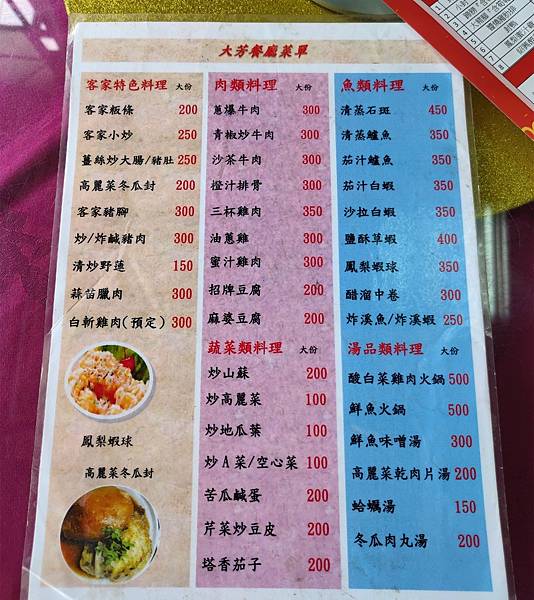 大芳餐廳菜單
客家特色料理 大份
客家粄條 200
客家小炒 250
薑絲炒大腸/豬肚 250
高麗菜冬瓜封 200
客家豬腳 300
炒/炸鹹豬肉 300
清炒野蓮 150
蒜苗臘肉 300
白斬雞肉(預定) 300
鳳梨蝦球
高麗菜冬瓜封
肉類料理 大份
蔥爆牛肉 300
青椒炒牛肉 300
沙茶牛肉 300
橙汁排骨 300
三杯雞肉 350
油蔥雞 300
蜜汁雞肉 300
招牌豆腐 200
麻婆豆腐 200
蔬菜類料理 大份
炒山蘇 200
炒高麗菜 100
炒地瓜葉 100
炒A菜/空心菜 100
苦瓜鹹蛋 200
芹菜炒豆皮 200
塔香茄子 200
魚類料理 大份
清蒸石斑 450
清蒸鱸魚 350
茄汁鱸魚 350
茄汁白蝦 350
沙拉白蝦 350
鹽酥草蝦 400
鳳梨蝦球 350
醋溜中卷 300
炸溪魚/炸溪蝦 250
湯品類料理 大份
酸白菜雞肉火鍋 500
鮮魚火鍋 500
鮮魚味噌湯 300
高麗菜乾肉片湯 200
蛤蠣湯 150
冬瓜肉丸湯 200